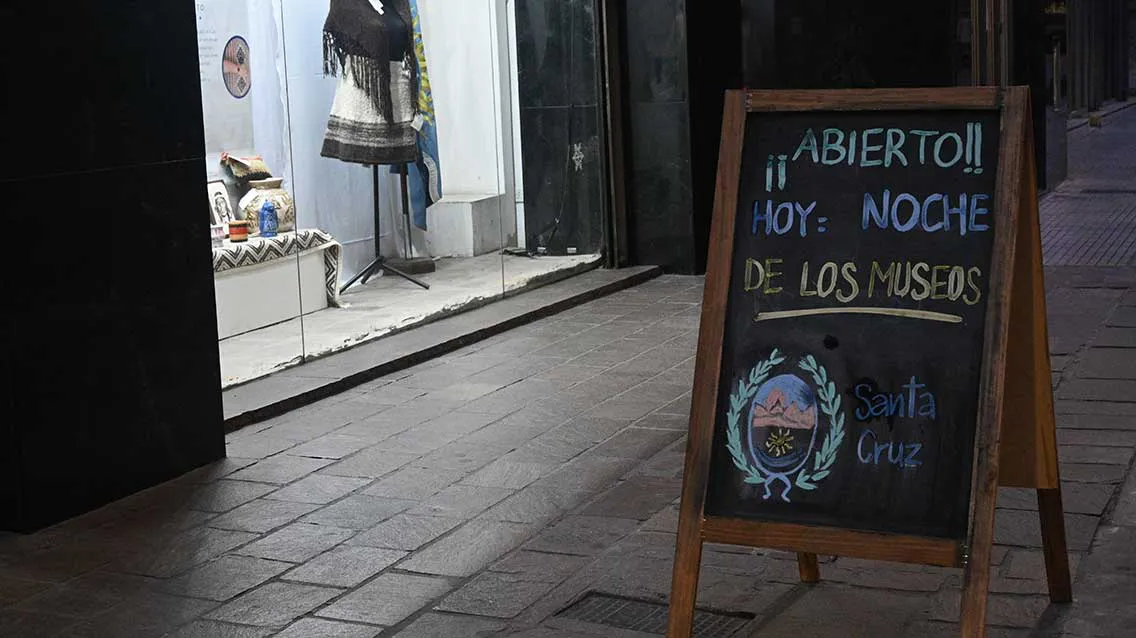 ¡¡ABIERTO!!
HOY: NOCHE
DE LOS MUSEOS
Santa
Cruz